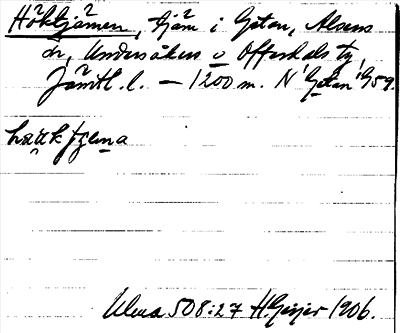 Höktjärnen, tjärn i Gåtan, Alsens
sn, Undersåkers o Offerdals tg,
Jämtl. l. – 1200 m. N "Gåtan" G59.
Ulma 508:27 H. Geijer 1906.